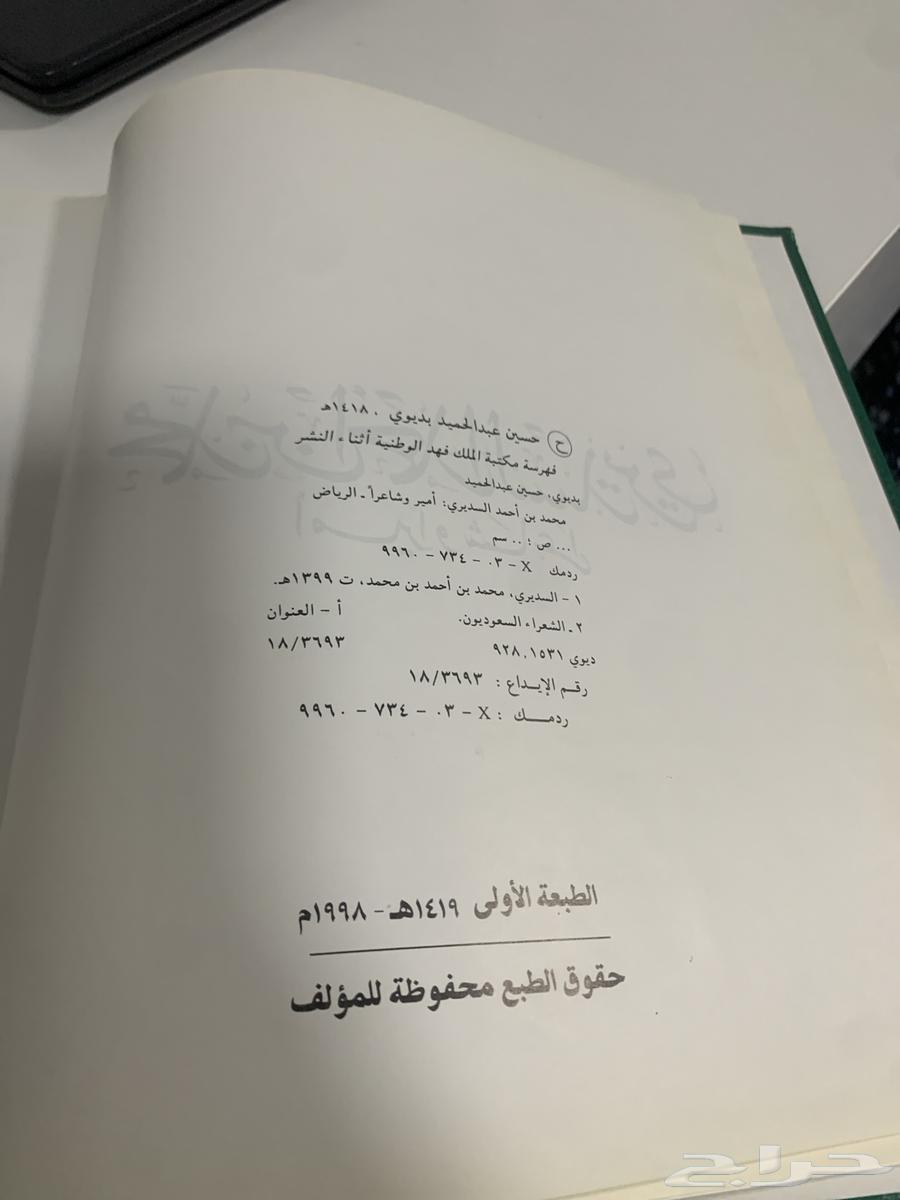 ح حسين عبدالحميد بديوي ، ١٤١٨هـ
فهرسة مكتبة الملك فهد الوطنية أثناء النشر
بديوي، حسين عبدالحميد
محمد بن أحمد السديري: أمير وشاعراً ـ الرياض
... ص ؛ .. سم
ردمك X - ٠٣ - ٧٣٤ - ٩٩٦٠
١ - السديري، محمد بن أحمد بن محمد، ت ١٣٩٩هـ.
٢ ـ الشعراء السعوديون. أ - العنوان
ديوي ٩٢٨,١٥٣١ ١٨/٣٦٩٣
رقـم الإيـداع : ١٨/٣٦٩٣
ردمــــك : X - ٠٣ - ٧٣٤ - ٩٩٦٠
الطبعة الأولى ١٤١٩هـ - ١٩٩٨م
حقوق الطبع محفوظة للمؤلف
حراج